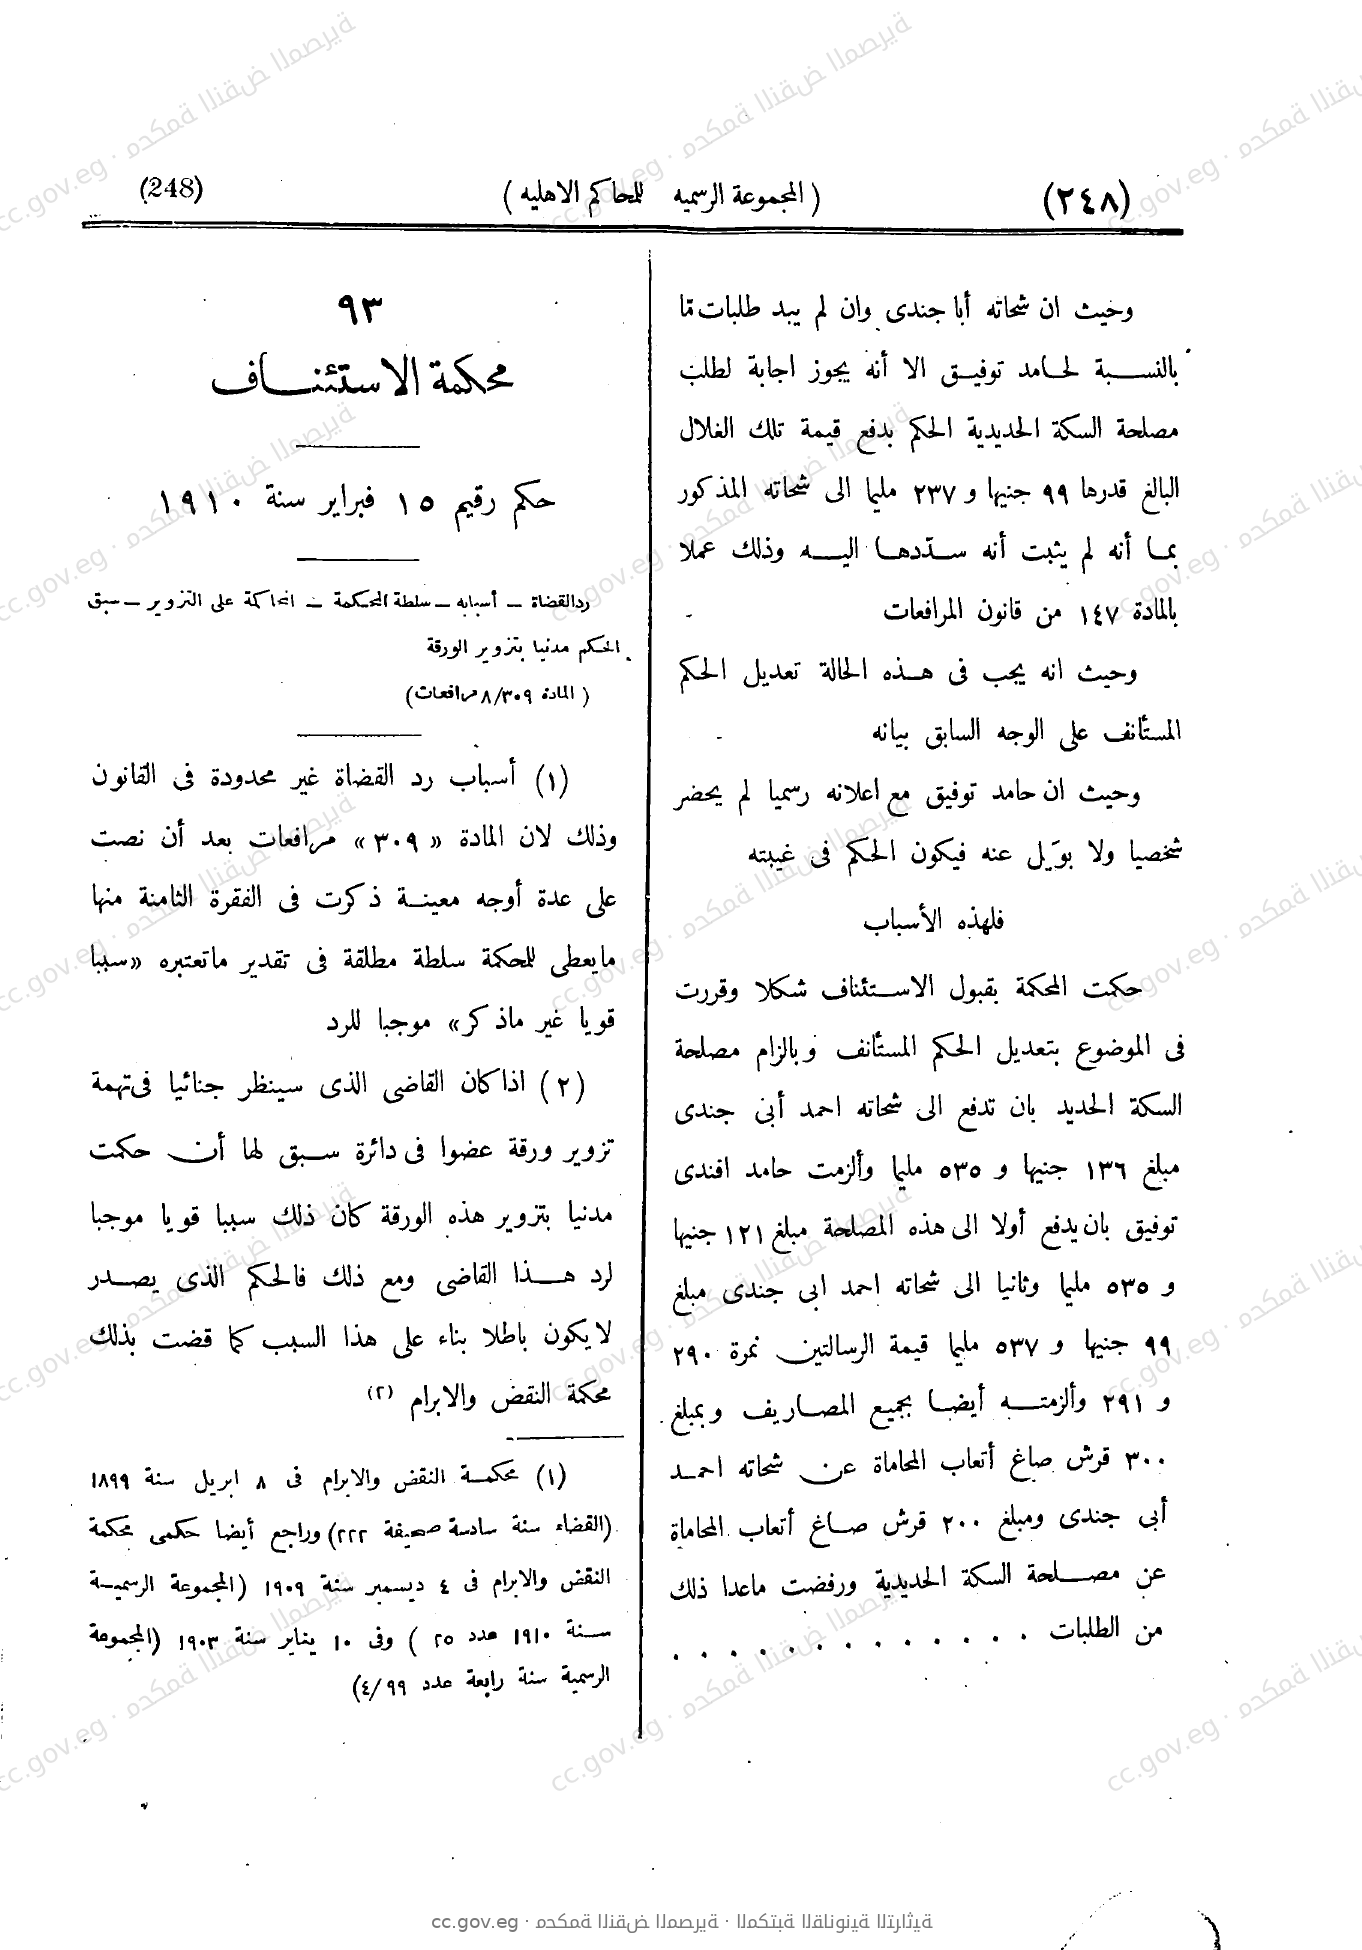 (٢٤٨) (المجموعة الرسميه للمحاكم الاهليه) (248)
وحيث ان شحاته أبا جندى وان لم يبد طلبات ما
بالنسبة لحامد توفيق الا أنه يجوز اجابة لطلب
مصلحة السكة الحديدية الحكم بدفع قيمة تلك الغلال
البالغ قدرها ٩٩ جنيها و ٢٣٧ مليما الى شحاته المذكور
بما أنه لم يثبت أنه سدّدها اليه وذلك عملا
بالمادة ١٤٧ من قانون المرافعات
وحيث انه يجب فى هذه الحالة تعديل الحكم
المستأنف على الوجه السابق بيانه
وحيث ان حامد توفيق مع اعلانه رسميا لم يحضر
شخصيا ولا بوكيل عنه فيكون الحكم فى غيبته
فلهذه الأسباب
حكمت المحكمة بقبول الاستئناف شكلا وقررت
فى الموضوع بتعديل الحكم المستأنف وبالزام مصلحة
السكة الحديد بان تدفع الى شحاته احمد أبى جندى
مبلغ ١٣٦ جنيها و ٥٣٥ مليما وألزمت حامد افندى
توفيق بان يدفع أولا الى هذه المصلحة مبلغ ١٢١ جنيها
و ٥٣٥ مليما وثانيا الى شحاته احمد ابى جندى مبلغ
٩٩ جنيها و ٥٣٧ مليما قيمة الرسالتين نمرة ٢٩٠
و ٢٩١ وألزمته أيضا بجميع المصاريف وبمبلغ
٣٠٠ قرش صاغ أتعاب المحاماة عن شحاته احمد
أبى جندى ومبلغ ٢٠٠ قرش صاغ أتعاب المحاماة
عن مصلحة السكة الحديدية ورفضت ماعدا ذلك
من الطلبات . . . . . . . . . . . . .
٩٣
محكمة الاستئناف
حكم رقيم ١٥ فبراير سنة ١٩١٠
رد القضاة – أسبابه – سلطة المحكمة – المحاكمة على التزوير – سبق
الحكم مدنيا بتزوير الورقة
(المادة ٨/٣٠٩ مرافعات)
(١) أسباب رد القضاة غير محدودة فى القانون
وذلك لان المادة «٣٠٩» مرافعات بعد أن نصت
على عدة أوجه معينة ذكرت فى الفقرة الثامنة منها
مايعطى للمحكمة سلطة مطلقة فى تقدير ماتعتبره «سببا
قويا غير ماذكر» موجبا للرد
(٢) اذا كان القاضى الذى سينظر جنائيا فى تهمة
تزوير ورقة عضوا فى دائرة سبق لها أن حكمت
مدنيا بتزوير هذه الورقة كان ذلك سببا قويا موجبا
لرد هذا القاضى ومع ذلك فالحكم الذى يصدر
لايكون باطلا بناء على هذا السبب كما قضت بذلك
محكمة النقض والابرام (٢)
(١) محكمة النقض والابرام فى ٨ ابريل سنة ١٨٩٩
(القضاء سنة سادسة صحيفة ٢٢٢) وراجع أيضا حكمى محكمة
النقض والابرام فى ٤ ديسمبر سنة ١٩٠٩ (المجموعة الرسمية
سنة ١٩١٠ عدد ٢٥) وفى ١٠ يناير سنة ١٩٠٣ (المجموعة
الرسمية سنة رابعة عدد ٤/٩٩)
cc.gov.eg · محكمة النقض المصرية · المكتبة القانونية التراثية